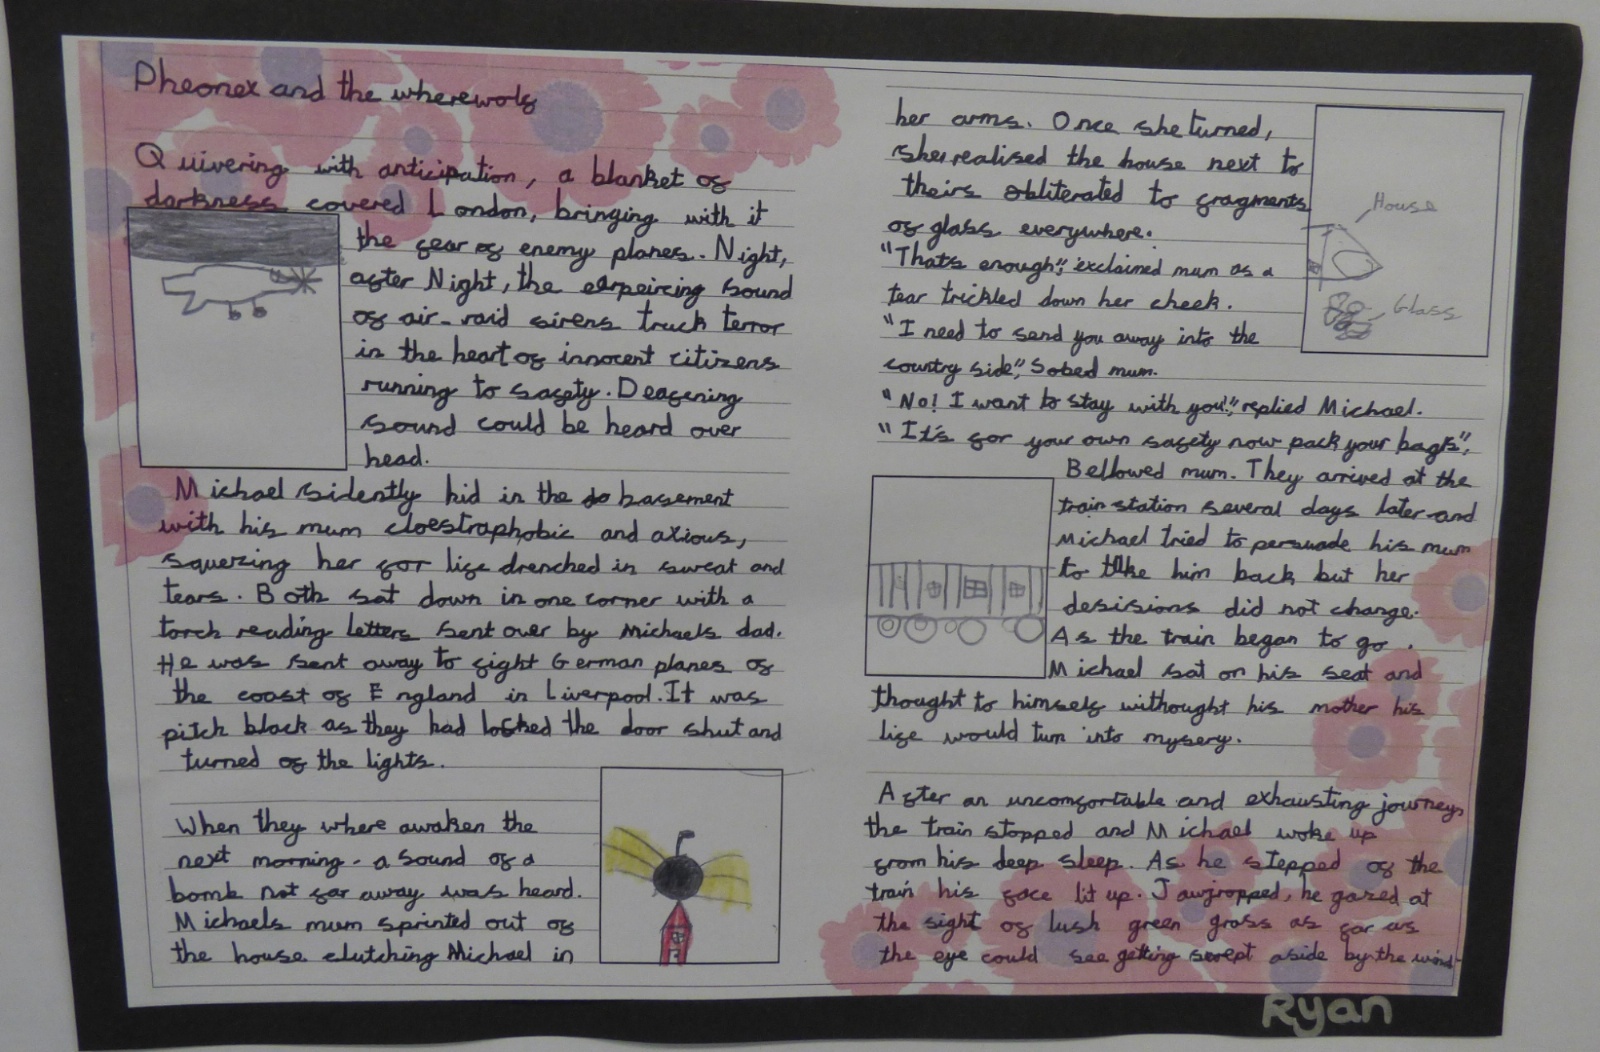 Pheonex and the wherewolf
Quivering with anticipation, a blanket of
darkness covered London, bringing with it
the fear of enemy planes. Night,
after Night, the earpeircing sound
of air-raid sirens truck terror
in the heart of innocent citizens
running to safety. Deafening
sound could be heard over
head.
Michael sidently hid in the basement
with his mum cloestraphobic and axious,
squezing her for life drenched in sweat and
tears. Both sat down in one corner with a
torch reading letters sent over by Michaels dad.
He was sent away to fight German planes of
the coast of England in Liverpool. It was
pitch black as they had locked the door shut and
turned of the lights.
When they where awaken the
next morning. a sound of a
bomb not far away was heard.
Michaels mum sprinted out of
the house clutching Michael in
her arms. Once she turned,
she realised the house next to
theirs obliterated to fragments
of glass everywhere.
"Thats enough", exclained mum as a
tear trickled down her cheek.
"I need to send you away into the
country side", Sobed mum.
"No! I want to stay with you!" replied Michael.
"It's for your own safety now pack your bags",
Bellowed mum. They arrived at the
train station several days later and
Michael tried to persuade his mum
to take him back but her
desisions did not change.
As the train began to go.
Michael sat on his seat and
thought to himself withought his mother his
life would turn into mysery.
After an uncomfortable and exhausting journey,
the train stopped and Michael woke up
from his deep sleep. As he stepped of the
train his face lit up. Jawjropped, he gazed at
the sight of lush green grass as far as
the eye could see getting swept aside by the wind.
House
Glass
Ryan